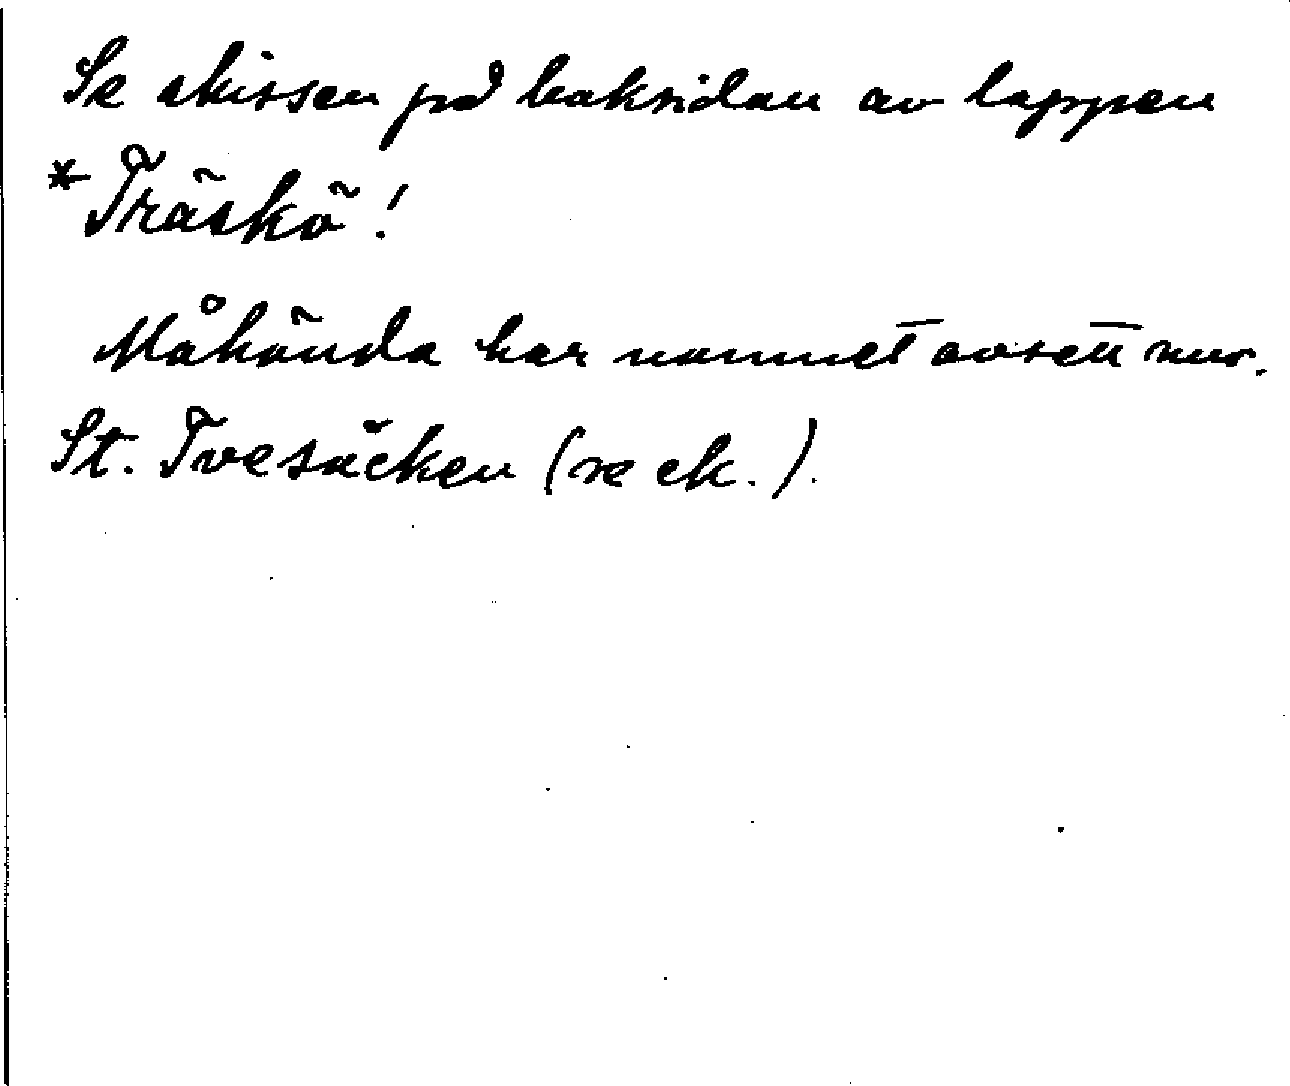 Se skissen på baksidan av lappen
*Träskö!
Måhända har namnet avsett nuv.
St. Tvesäcken (se ek.).